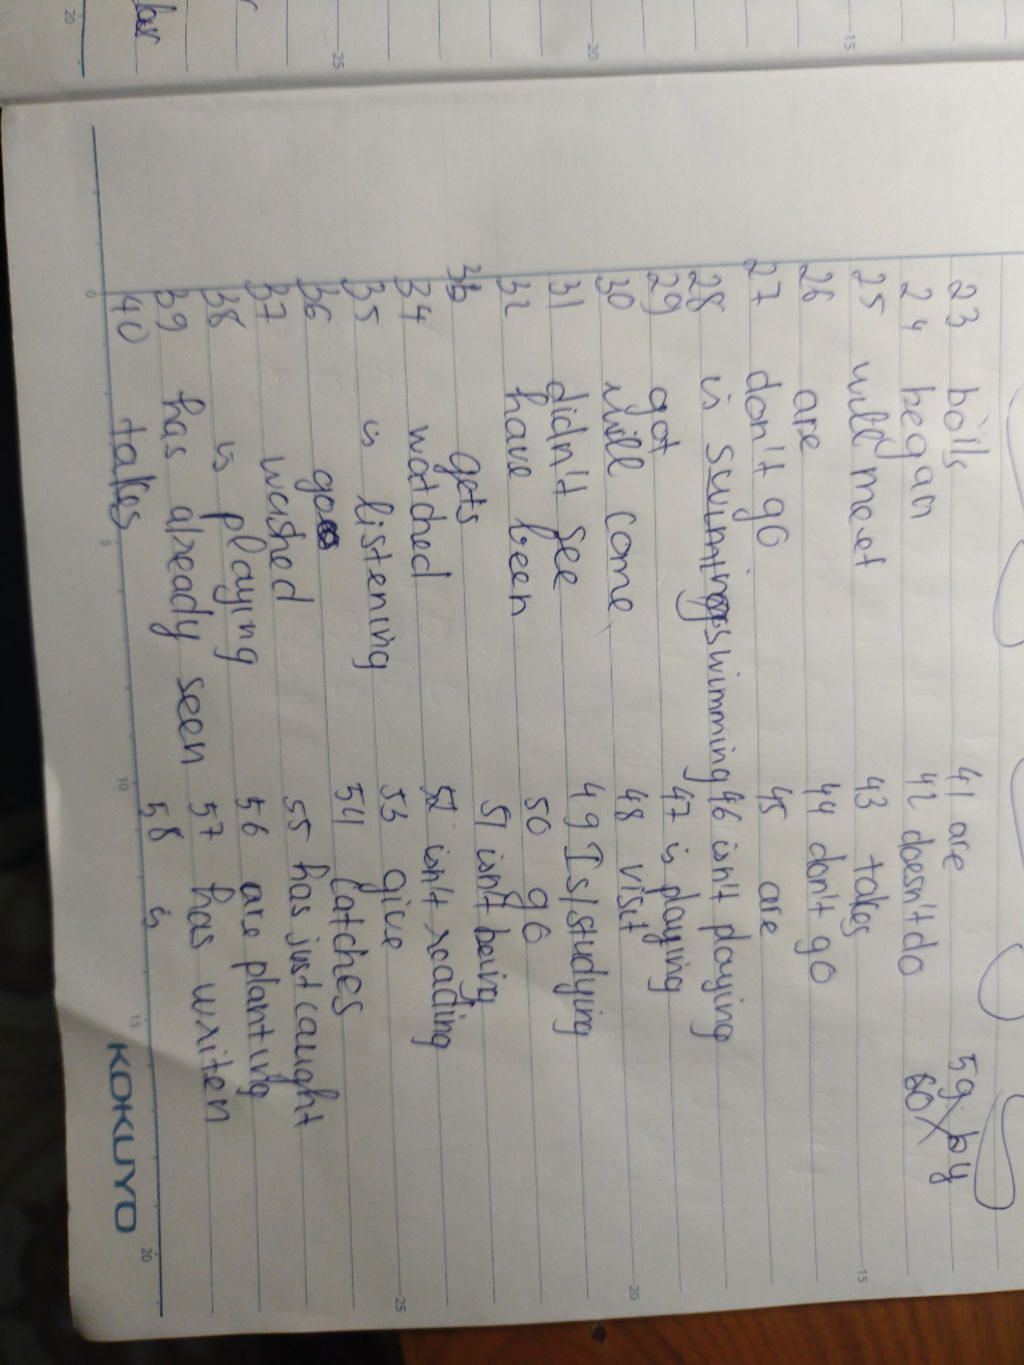 23 boils
24 began
25 will meet
26 are
27 don't go
28 is swimming
29 got
30 will come
31 didn't see
32 have been
33 gets
34 watched
35 is listening
36 goes
37 washed
38 is playing
39 has already seen
40 takes
41 are
42 doesn't do
43 takes
44 don't go
45 are
46 isn't playing
47 is playing
48 visit
49 Is/studying
50 go
51 isn't being
52 isn't reading
53 give
54 catches
55 has just caught
56 are planting
57 has writen
58 is
59 by
60
KOKUYO
0
5
10
15
20
25
20
15
20
25
20
15